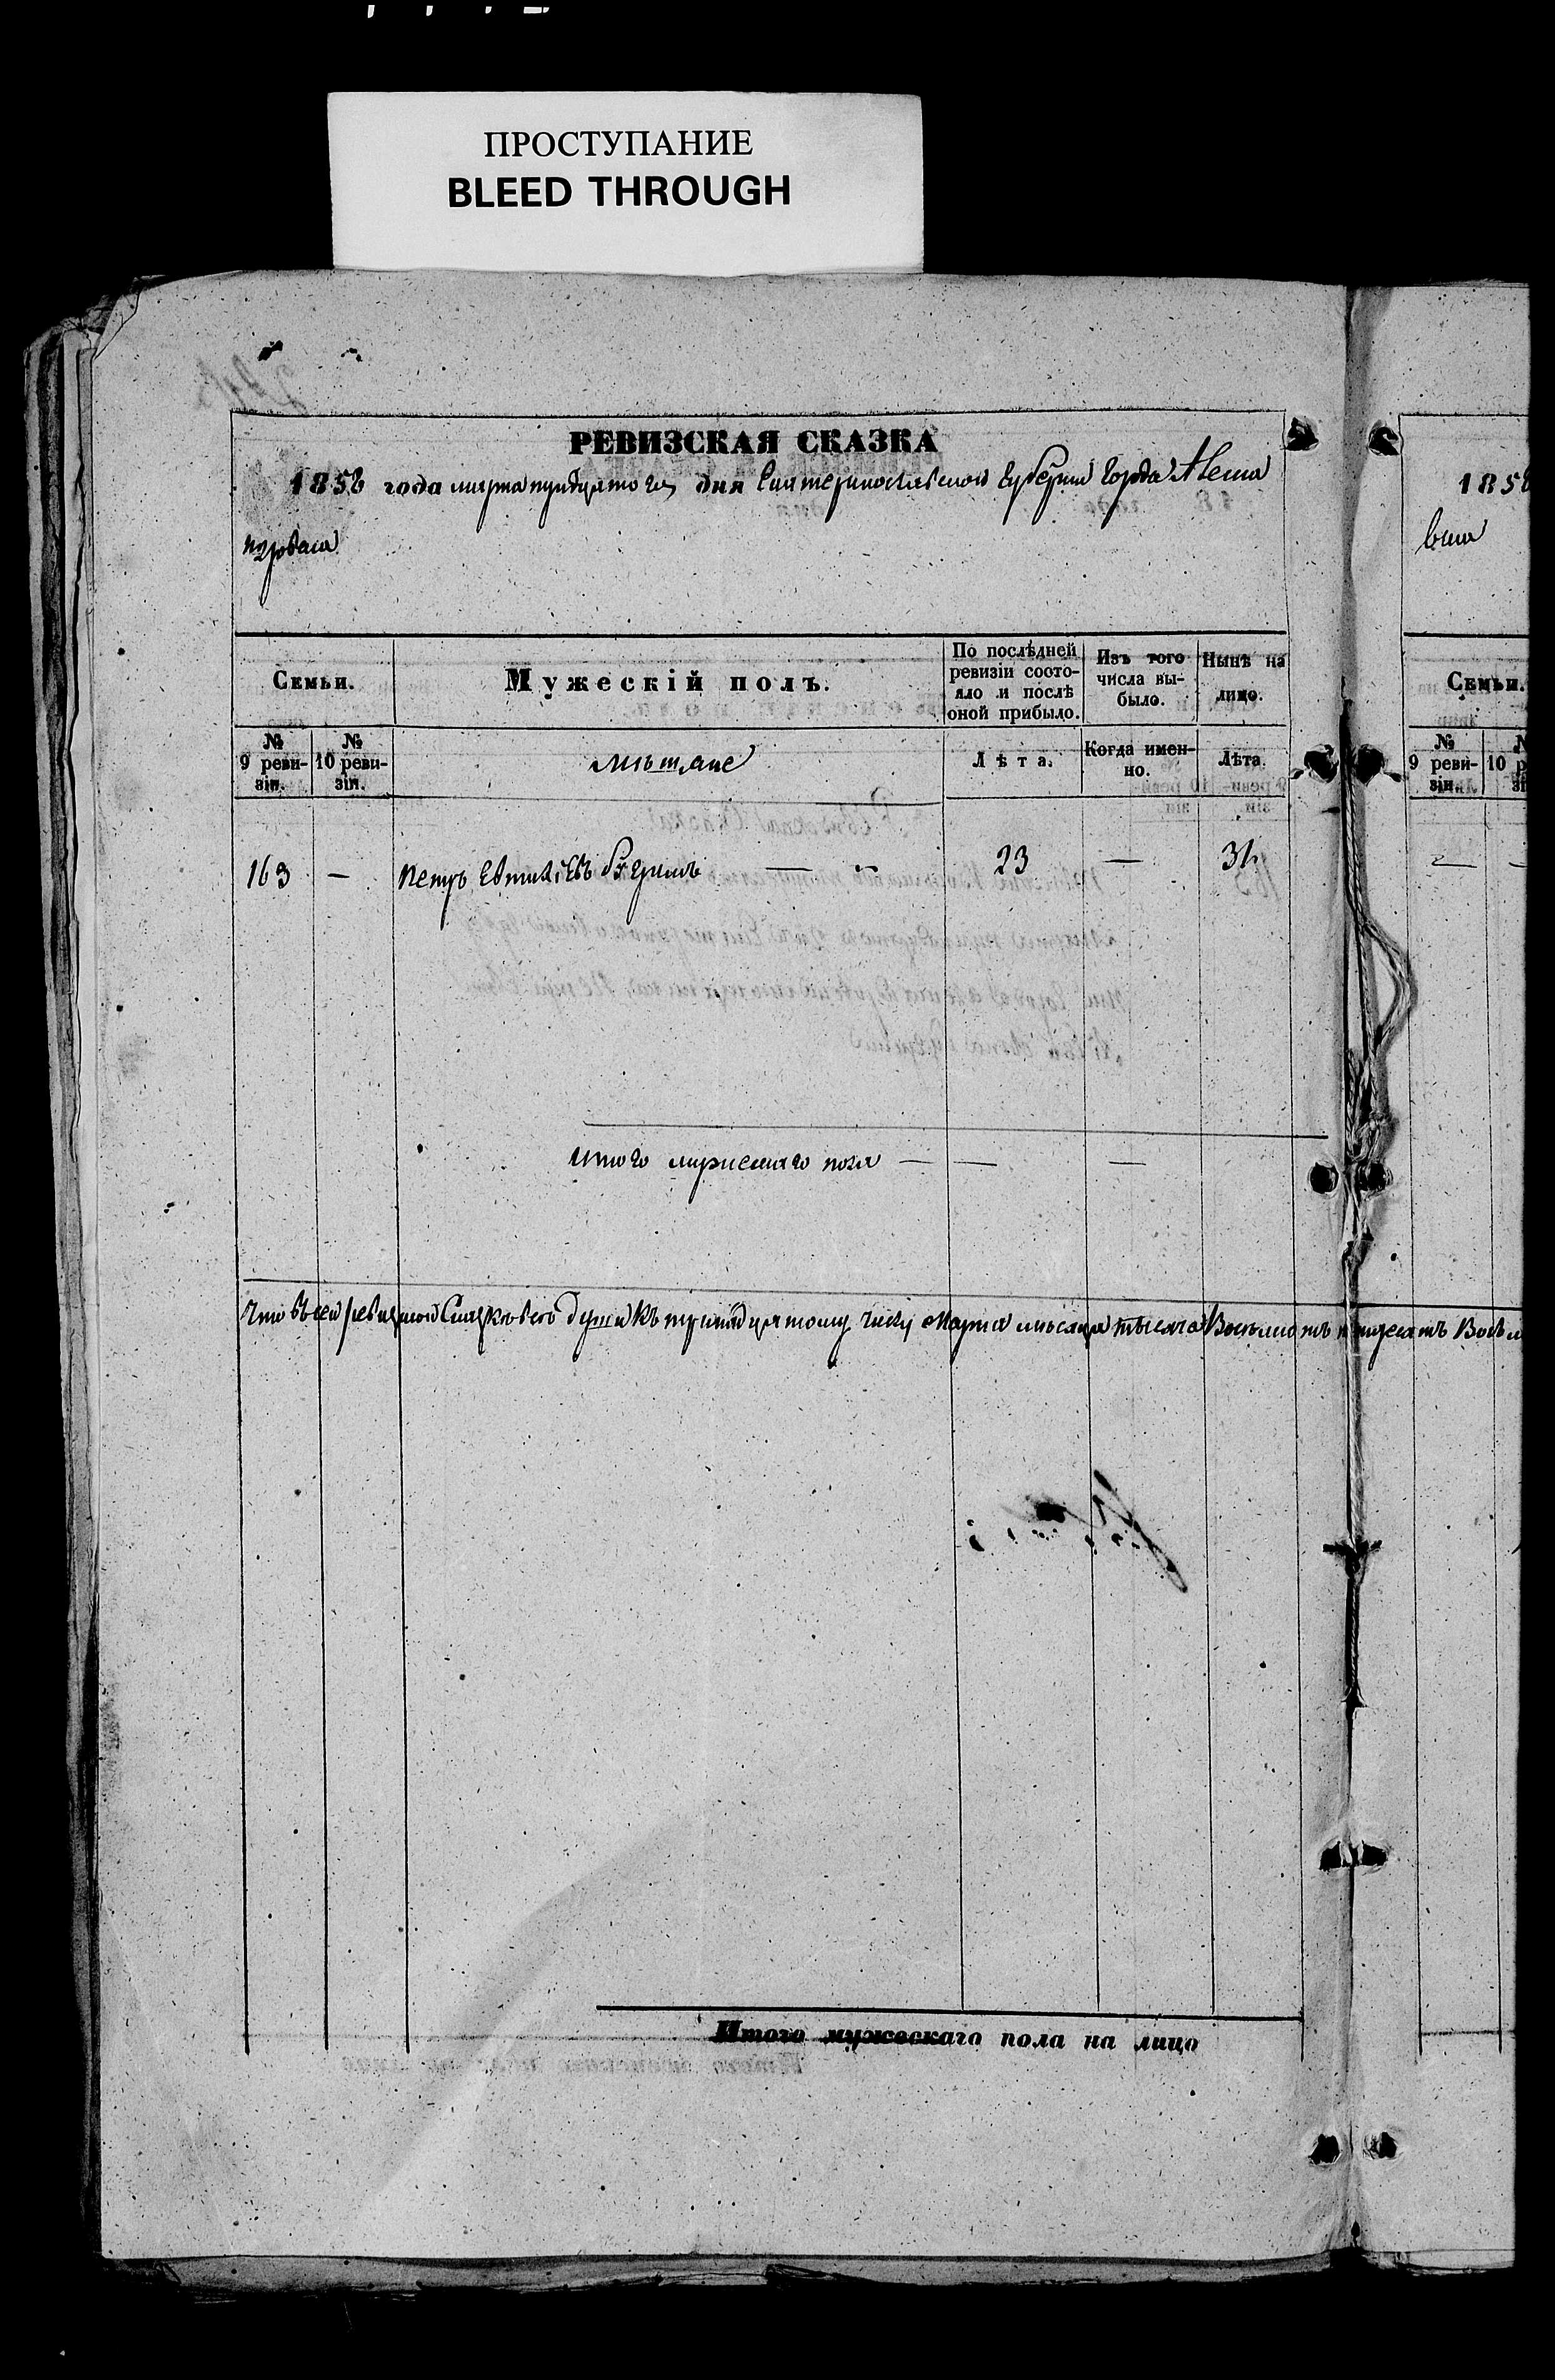 ПРОСТУПАНИЕ
BLEED THROUGH
РЕВИЗСКАЯ СКАЗКА
1858 года марта тридцатого дня Екатеринославской Губернии Города Алекса
1858
Семьи.
Мужескій полъ.
По послѣдней ревизіи состояло и послѣ оной прибыло.
Изъ того числа выбыло.
Нынѣ на лицо.
Семьи.
№ 9 ревизіи.
№ 10 ревизіи.
мѣщане
Лѣта.
Когда именно.
Лѣта.
№ 9 ревизіи.
163 — Петръ — 23 — 31
итого мужескаго пола — — —
Что въ сей ревизской Сказкѣ всѣ души къ тридцатому числу Марта мѣсяца тысяча Восемьсотъ пятдесятъ
Итого мужескаго пола на лицо